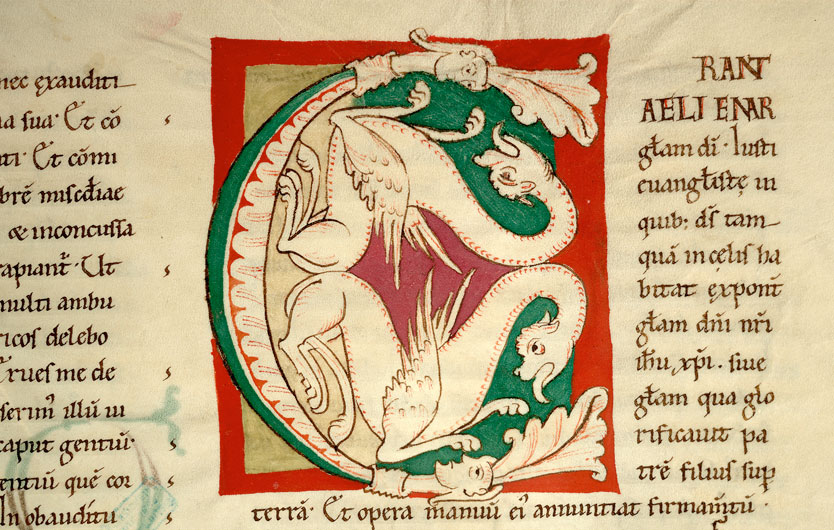 nec exauditi
na sua. Et cō
nti. Et cōmi
brē misēdiae
& inconcussa
rapiant̄. Ut
multi ambu
ricos delebo
Erues me de
serim illū in
caput gentiū.
entiū quē cog
In obauditu
RANT
AELI ENAR
gl̄am dī. Iusti
euangl̄istę in
quib; d̄s tam
quā in cęlis ha
bitat ęxpon̄t
gl̄am dn̄i nr̄i
ih̄u xp̄i. siue
gl̄am qua glo
rificauit pa
trē filius sup
terrā. Et opera manuū ei' annuntiat firmam̄tū.